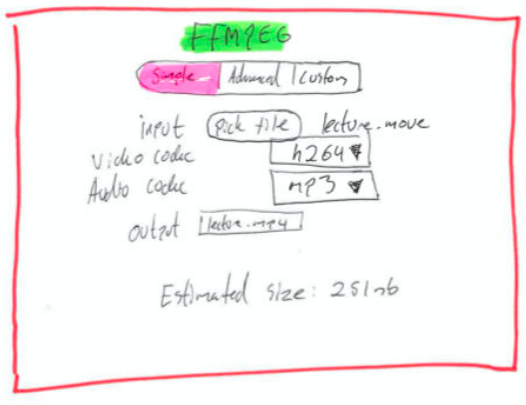 FFMPEG
Simple Advanced Custom
input pick file lecture.move
Video codec h264
Audio codec mp3
output lecture.mp4
Estimated size: 251mb